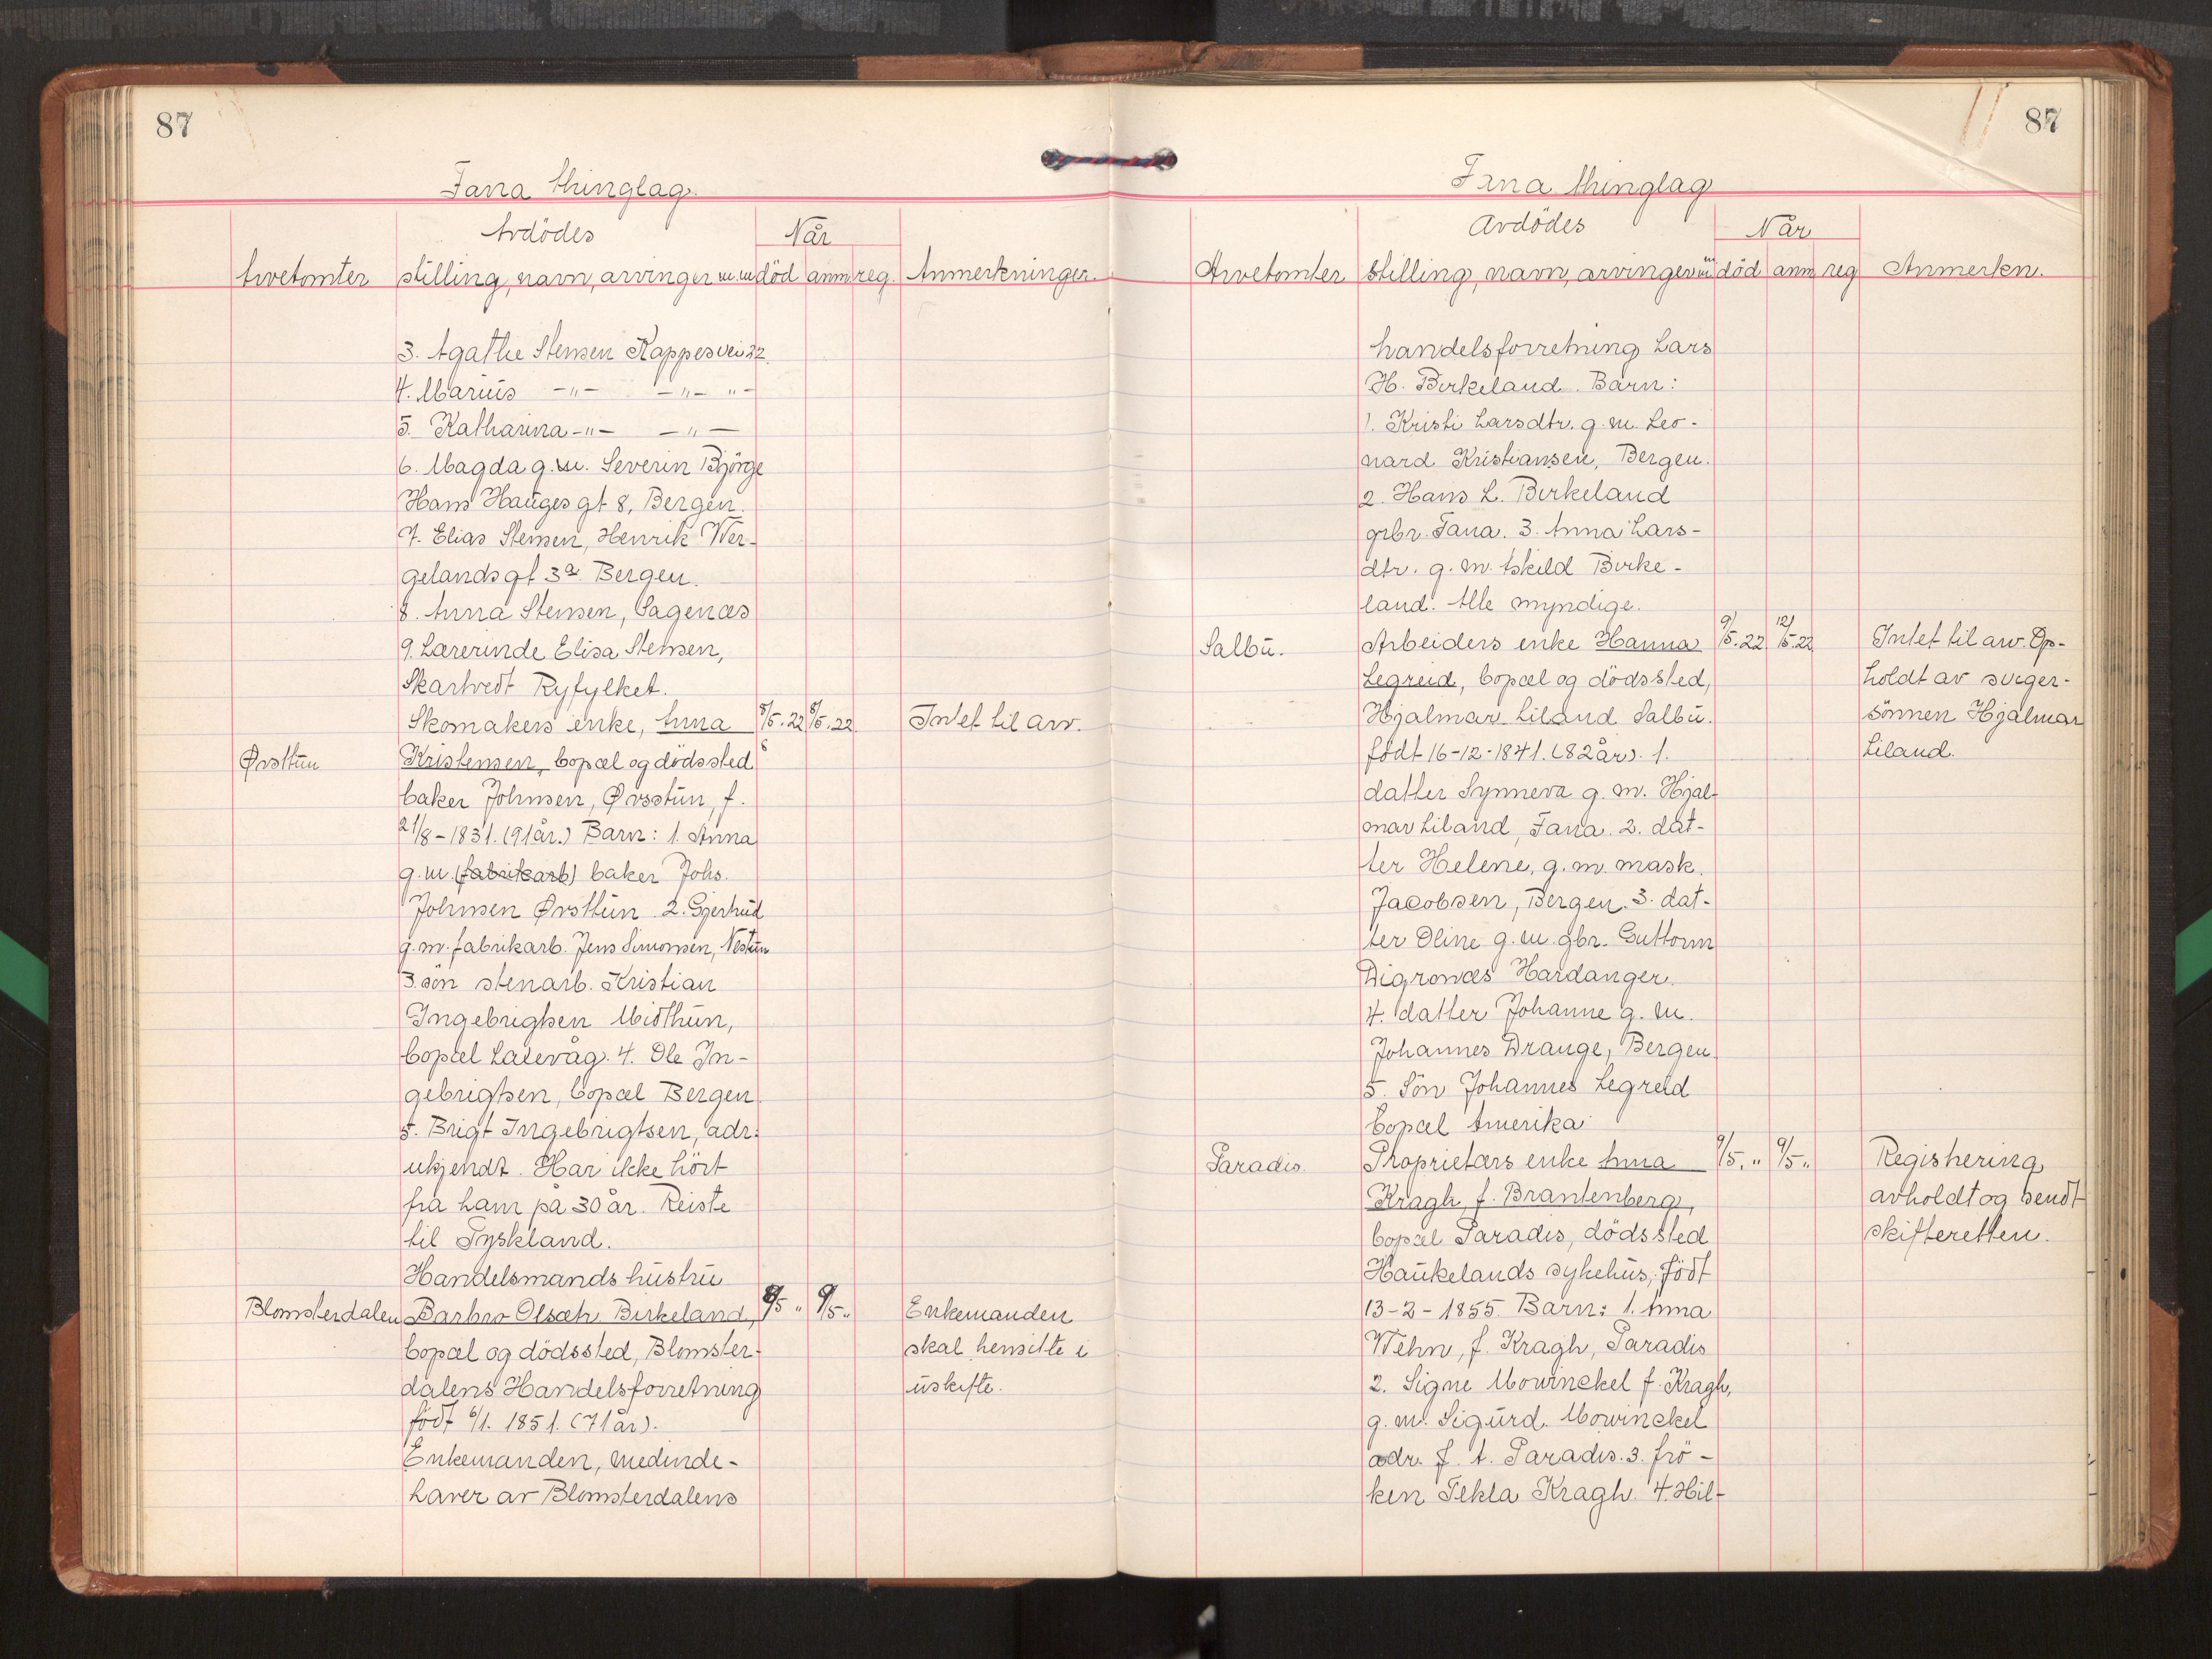 87
Fana thinglag.
Avdödes
Når
Arvetomter stilling, navn, arvinger m.m död anm. reg. Anmerkninger.
3. Agathe Stensen Kappesvei 22.
4. Marius -"- -"- "-
5. Katharina -"- -"-
6. Magda g.m. Severin Bjørge
Hans Hauges gt 8, Bergen.
7. Elias Stensen, Henrik Wer-
gelandsgt 3a Bergen.
8. Anna Stensen, Sagenæs
9. Lærerinde Elisa Stensen,
Skartvedt Ryfylket.
Skomakers enke, Anna 8/5.22 8/5.22 Intet til arv.
Øvsttun Kristensen, bopæl og dödssted
baker Johnsen, Øvsttun, f.
21/8-1831. (91 år.) Barn: 1. Anna
g.m. (fabrikarb) baker Johs.
Johnsen Øvsttun 2. Gjertrud
g.m. fabrikarb. Jens Simonsen, Nestun
3. sön stenarb. Kristian
Ingebrigtsen Midthun,
bopæl Laxevåg. 4. Ole In-
gebrigtsen, bopæl Bergen
5. Brigt Ingebrigtsen, adr.
ukjendt. Har ikke hört
fra ham på 30 år. Reiste
til Tyskland.
Handelsmands hustru
Blomsterdalen Barbro Olsdtr. Birkeland, 8/5 " 9/5 " Enkemanden
bopæl og dödssted, Blomster- skal hensitte i
dalens Handelsforretning uskifte.
født 6/1. 1851. (71 år).
Enkemanden, medinde-
haver av Blomsterdalens
87
Fana thinglag
Avdödes
Når
Arvetomter stilling, navn, arvinger m.m död anm reg Anmerkn.
handelsforretning Lars
H. Birkeland. Barn:
1. Kristi Larsdtr. g.m. Leo-
nard Kristiansen, Bergen.
2. Hans L. Birkeland
grbr. Fana. 3. Anna Lars-
dtr. g.m. Askild Birke-
land. Alle myndige.
Salbu. Arbeiders enke Hanna 9/5.22 12/5.22 Intet til arv. Op-
Legreid, bopæl og dödssted, holdt av sviger-
Hjalmar Liland Salbu. sönnen Hjalmar
født 16-12-1841. (82 år). 1. Liland.
datter Synneva g.m. Hjal-
mar Liland, Fana. 2. dat-
ter Helene, g.m. mask.
Jacobsen, Bergen. 3. dat-
ter Oline g.m. gbr. Guttorm
Digranæs Hardanger.
4. datter Johanne g.m.
Johannes Drange, Bergen.
5. Sön Johannes Legreid
bopæl Amerika
Paradis. Proprietærs enke Anna 9/5. " 9/5 " Registrering
Kragh, f. Brantenberg, avholdt og sendt
bopæl Paradis, dödssted skifteretten.
Haukelands sykehus, födt
13-2-1855. Barn: 1. Anna
Wehn, f. Kragh, Paradis
2. Signe Mowinckel f. Kragh,
g.m. Sigurd Mowinckel
adr. f. t. Paradis. 3. frö-
ken Tekla Kragh. 4. Hil-